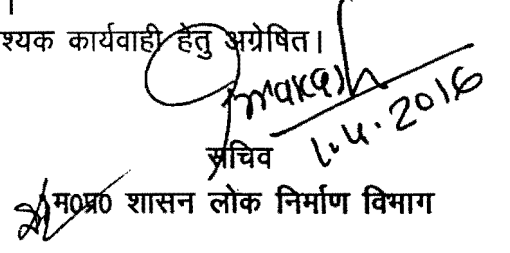 श्यक कार्यवाही हेतु अग्रेषित।
1.4.2016
सचिव
म0प्र0 शासन लोक निर्माण विभाग